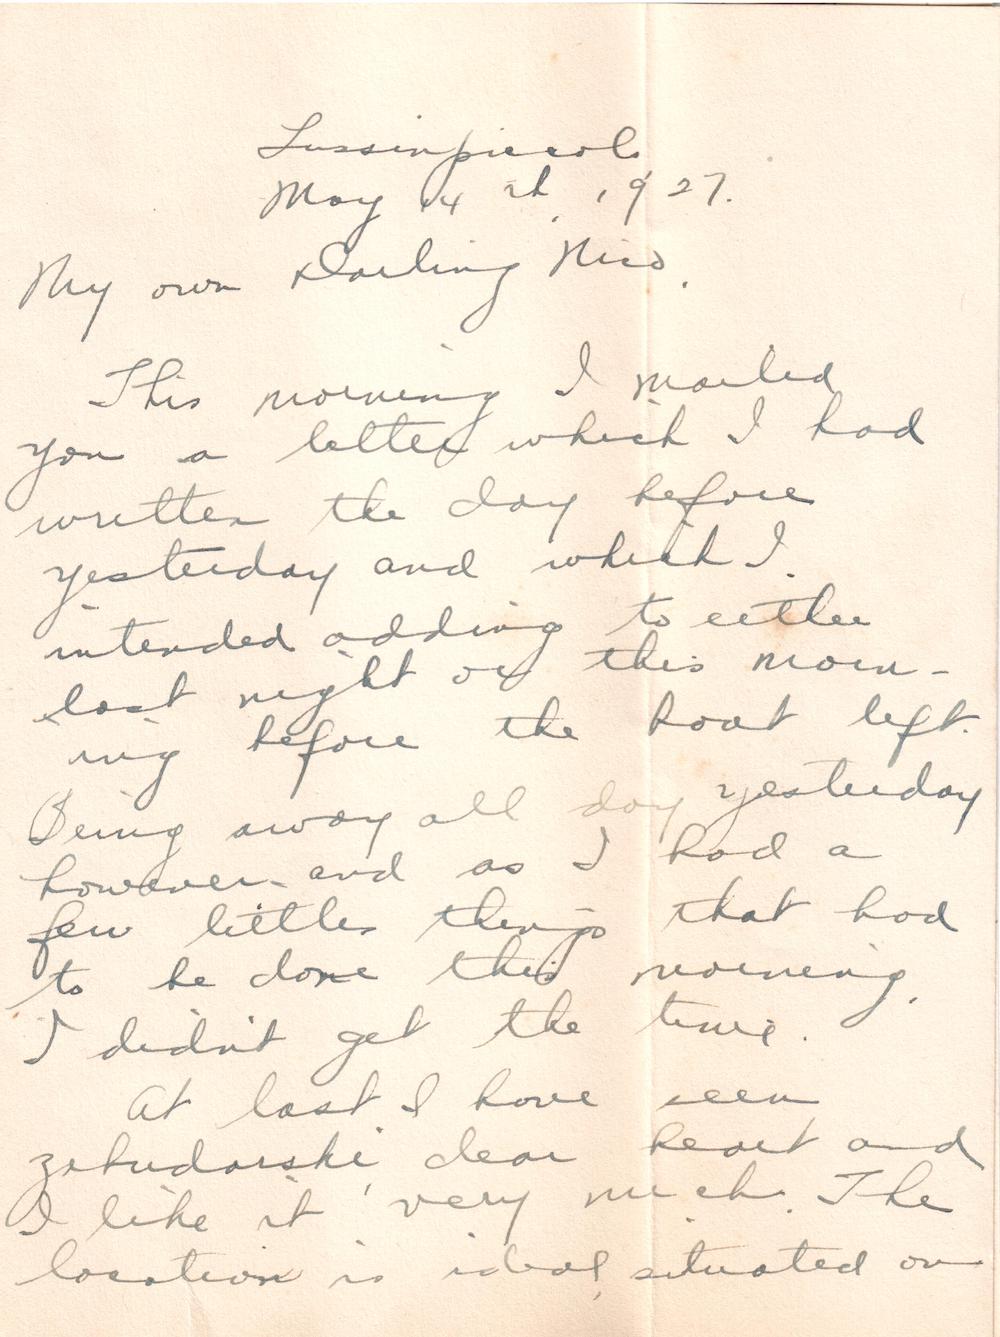 Lussinpiccolo
May 14th, 1927.
My own Darling Nico,
This morning I mailed
you a letter which I had
written the day before
yesterday and which I
intended adding to either
last night or this morn-
ing before the boat left.
Being away all day yesterday
however and as I had a
few little things that had
to be done this morning,
I didn't get the time.
At last I have seen
dear heart and
I like it very much. The
location is ideal, situated on